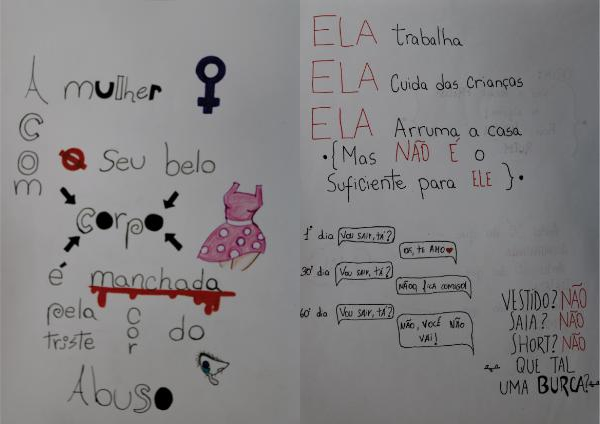 A mulher
COm
o seu belo
corpo
é manchada
pela cor do
triste
Abuso
ELA trabalha
ELA Cuida das crianças
ELA Arruma a casa
•{Mas NÃO É o
Suficiente para ELE}•
1° dia Vou sair, tá?
OK, TE AMO
30° dia Vou sair, tá?
NÃOO, fICA COMIGO!
60° dia Vou sair, tá?
NÃO, VOCÊ NÃO
VAI!
VESTIDO? NÃO
SAIA? NÃO
SHORT? NÃO
QUE TAL
UMA BURCA?